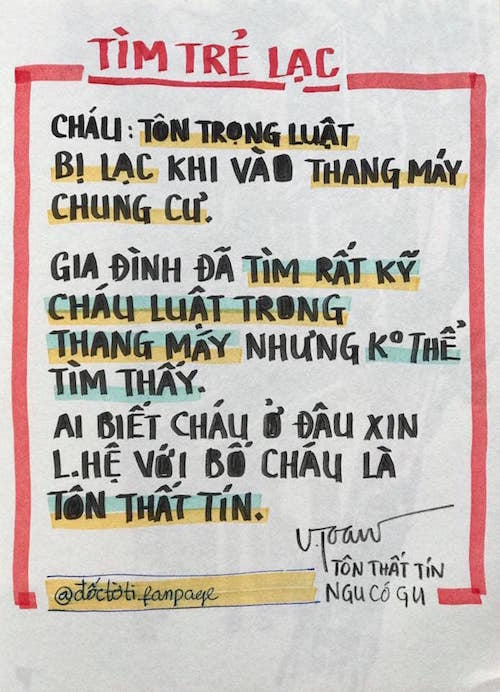 TÌM TRẺ LẠC
CHÁU: TÔN TRỌNG LUẬT
BỊ LẠC KHI VÀO THANG MÁY
CHUNG CƯ.
GIA ĐÌNH ĐÃ TÌM RẤT KỸ
CHÁU LUẬT TRONG
THANG MÁY NHƯNG Kº THỂ
TÌM THẤY.
AI BIẾT CHÁU Ở ĐÂU XIN
L.HỆ VỚI BỐ CHÁU LÀ
TÔN THẤT TÍN.
V.Toan
TÔN THẤT TÍN
NGU CÓ GU
@đốctờti.fanpage